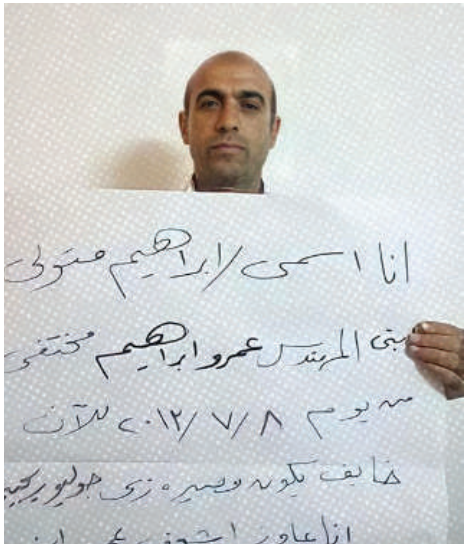 انا اسمى/ابراهيم متولى
ابنى المهندس عمرو ابراهيم مختفى
من يوم ٨/٧/٢٠١٣ للآن
خايف يكون مصيره زى جوليو
انا عاوز اشوف